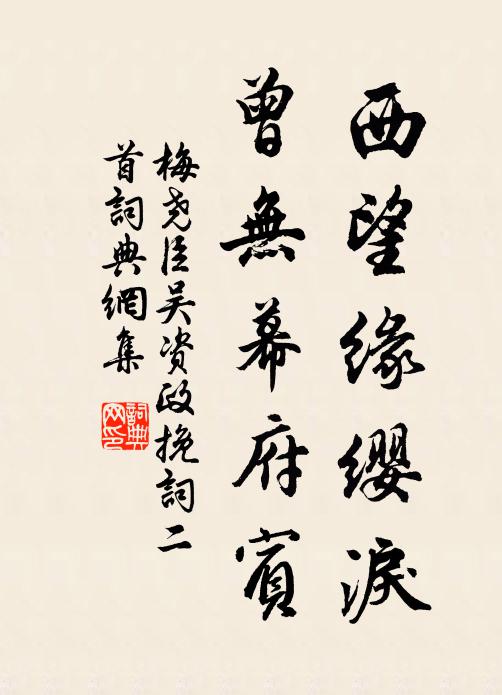 西望緣纓淚
曾無幕府賓
梅尧臣吴资政挽詞二
首詞典網集
詞典网印